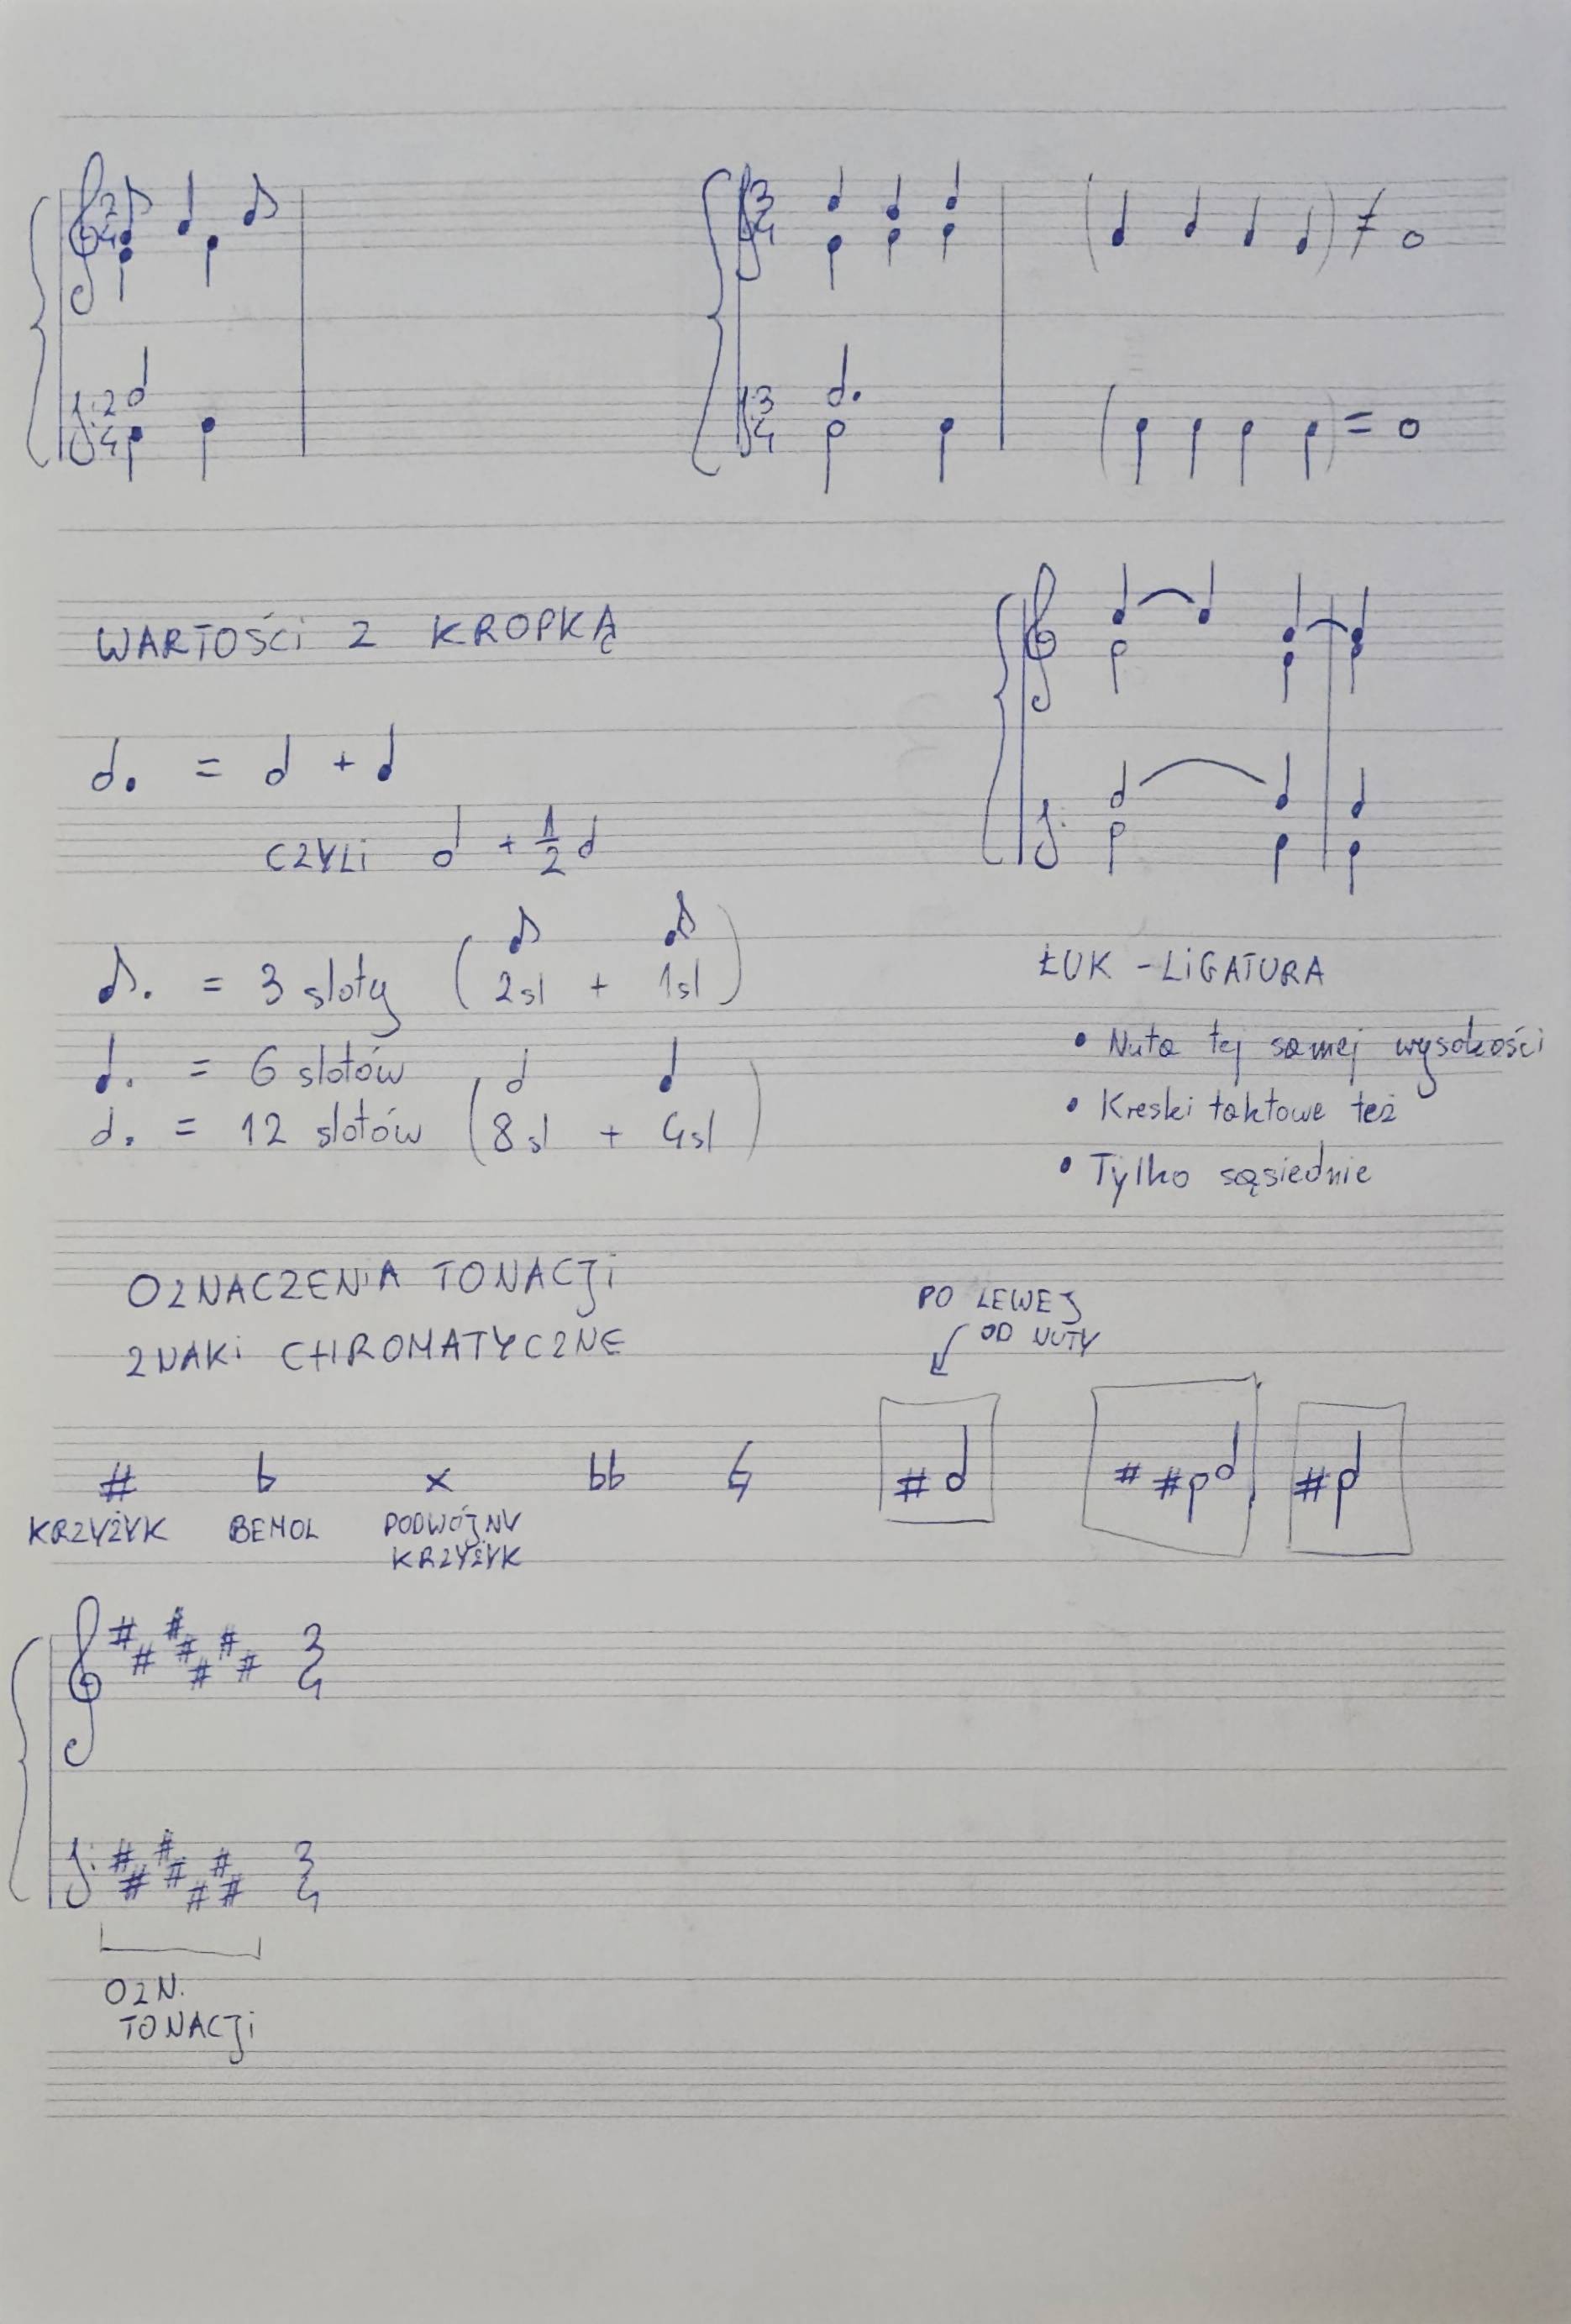 2 4
3 4
≠
2 4
3 4
=
WARTOŚCI Z KROPKĄ
= +
CZYLI + 1/2
. = 3 sloty (2sl + 1sl)
. = 6 slotów
. = 12 slotów (8sl + 4sl)
ŁUK - LIGATURA
• Nuta tej samej wysokości
• Kreski taktowe też
• Tylko sąsiednie
OZNACZENIA TONACJI
ZNAKI CHROMATYCZNE
PO LEWEJ
OD NUTY
# b x bb ♮ # # # #
KRZYŻYK BEMOL PODWÓJNY
KRZYŻYK
# # # # # # # 3 4
# # # # # # # 3 4
OZN.
TONACJI